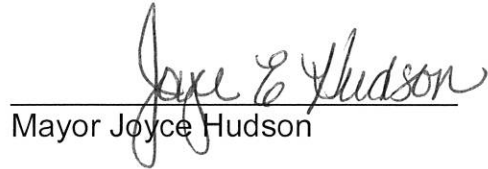 Joyce E Hudson
Mayor Joyce Hudson